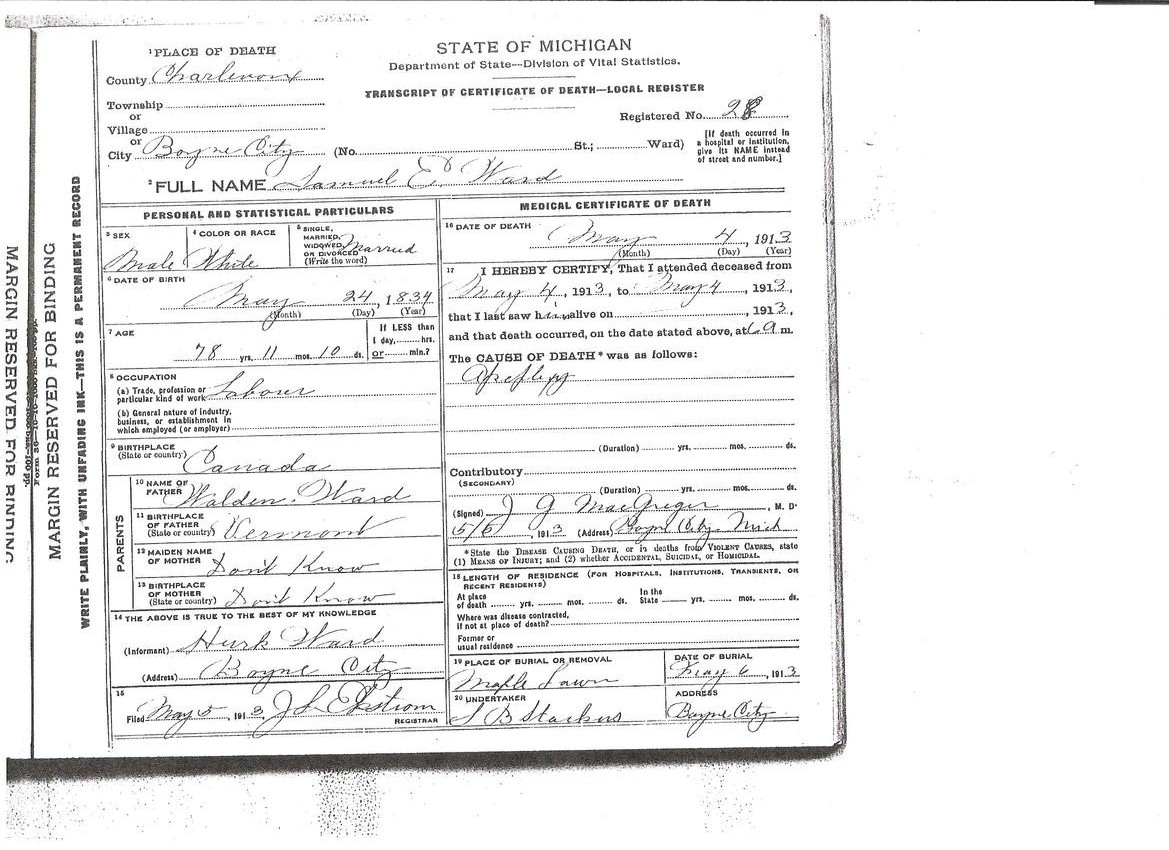 STATE OF MICHIGAN
Department of State—Division of Vital Statistics.
TRANSCRIPT OF CERTIFICATE OF DEATH—LOCAL REGISTER
1 PLACE OF DEATH
County Charlevoix
Township
or
Village
or
City Boyne City (No. St.; Ward)
Registered No. 28
[If death occurred in
a hospital or institution,
give its NAME instead
of street and number.]
2 FULL NAME Samuel E. Ward
PERSONAL AND STATISTICAL PARTICULARS
3 SEX
Male
4 COLOR OR RACE
White
5 SINGLE,
MARRIED,
WIDOWED
OR DIVORCED
(Write the word)
Married
6 DATE OF BIRTH
May 24, 1834
(Month) (Day) (Year)
7 AGE
78 yrs. 11 mos. 10 ds.
If LESS than
1 day, hrs.
or min.?
8 OCCUPATION
(a) Trade, profession or
particular kind of work Labour
(b) General nature of industry,
business, or establishment in
which employed (or employer)
9 BIRTHPLACE
(State or country) Canada
PARENTS
10 NAME OF
FATHER Walden Ward
11 BIRTHPLACE
OF FATHER
(State or country) Vermont
12 MAIDEN NAME
OF MOTHER Dont Know
13 BIRTHPLACE
OF MOTHER
(State or country) Dont Know
14 THE ABOVE IS TRUE TO THE BEST OF MY KNOWLEDGE
(Informant) Ward
(Address) Boyne City
15
Filed May 5, 1913 J L Ekstrom
REGISTRAR
MEDICAL CERTIFICATE OF DEATH
16 DATE OF DEATH
May 4, 1913
(Month) (Day) (Year)
17 I HEREBY CERTIFY, That I attended deceased from
May 4, 1913, to May 4, 1913,
that I last saw him alive on , 1913,
and that death occurred, on the date stated above, at 6 a m.
The CAUSE OF DEATH* was as follows:
(Duration) yrs. mos. ds.
Contributory
(SECONDARY)
(Duration) yrs. mos. ds.
(Signed) J G MacGregor, M. D.
5/5, 1913 (Address) Boyne City Mich
*State the DISEASE CAUSING DEATH, or in deaths from VIOLENT CAUSES, state
(1) MEANS OF INJURY; and (2) whether ACCIDENTAL, SUICIDAL, or HOMICIDAL.
18 LENGTH OF RESIDENCE (FOR HOSPITALS, INSTITUTIONS, TRANSIENTS, OR
RECENT RESIDENTS)
At place
of death yrs. mos. ds.
In the
State yrs. mos. ds.
Where was disease contracted,
if not at place of death?
Former or
usual residence
19 PLACE OF BURIAL OR REMOVAL
Maple Lawn
DATE OF BURIAL
May 6, 1913
20 UNDERTAKER
S B Stackus
ADDRESS
Boyne City
WRITE PLAINLY, WITH UNFADING INK—THIS IS A PERMANENT RECORD
MARGIN RESERVED FOR BINDING
MARGIN RESERVED FOR BINDING